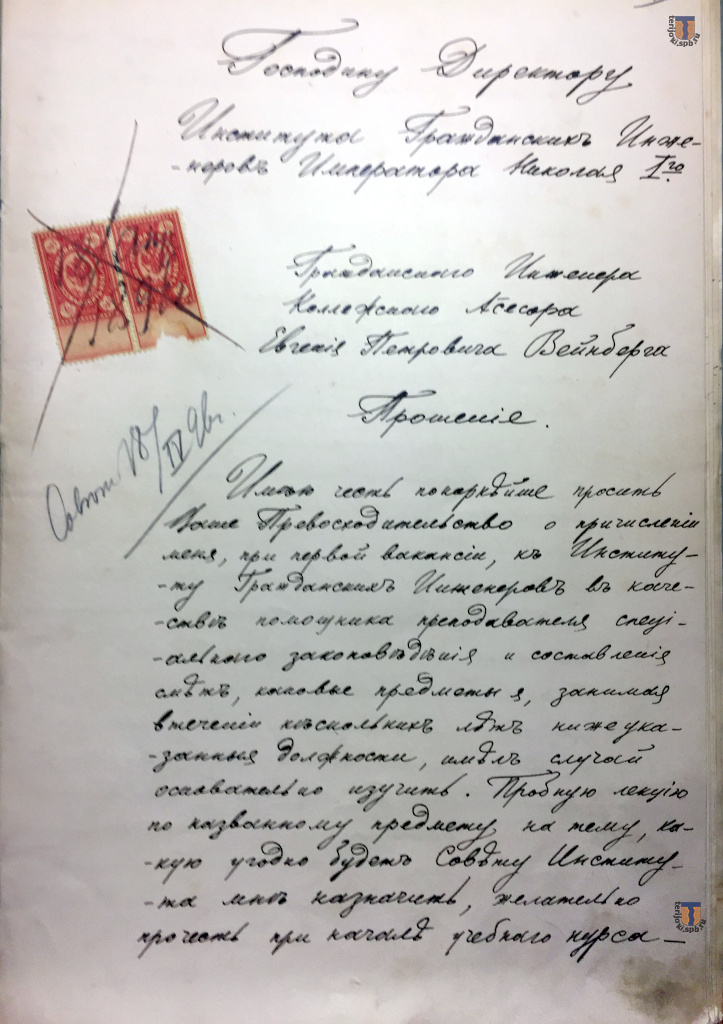 Господину Директору
Института Гражданскихъ Инже-
-неровъ Императора Николая Iго.
Гражданскаго Инженера
Коллежскаго Асесора
Евгенія Петровича Вейнберга
Прошеніе.
18/IV 96 г.
Имѣю честь покорнѣйше просить
Ваше Превосходительство о причисленіи
меня, при первой вакансіи, къ Институ-
-ту Гражданскихъ Инженеровъ въ каче-
-ствѣ помощника преподавателя спеці-
-альнаго законовѣдѣнія и составленія
смѣтъ, каковые предметы я, занимая
втеченіи нѣсколькихъ лѣтъ нижеука-
-занныя должности, имѣлъ случай
основательно изучить. Пробную лекцію
по названному предмету, на тему, ка-
-кую угодно будетъ Совѣту Институ-
-та мнѣ назначить, желательно
прочесть при началѣ учебнаго курса
terijoki.spb.ru
terijoki.spb.ru